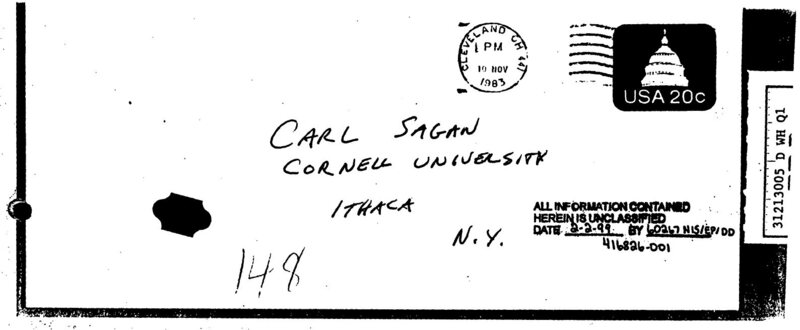 CLEVELAND OH 441
1 PM
19 NOV
1983
USA 20c
CARL SAGAN
CORNELL UNIVERSITY
ITHACA
N.Y.
148
ALL INFORMATION CONTAINED
HEREIN IS UNCLASSIFIED
DATE 2-2-99 BY 60267 NIS/EP/DD
416826-001
31213005 D WH Q1